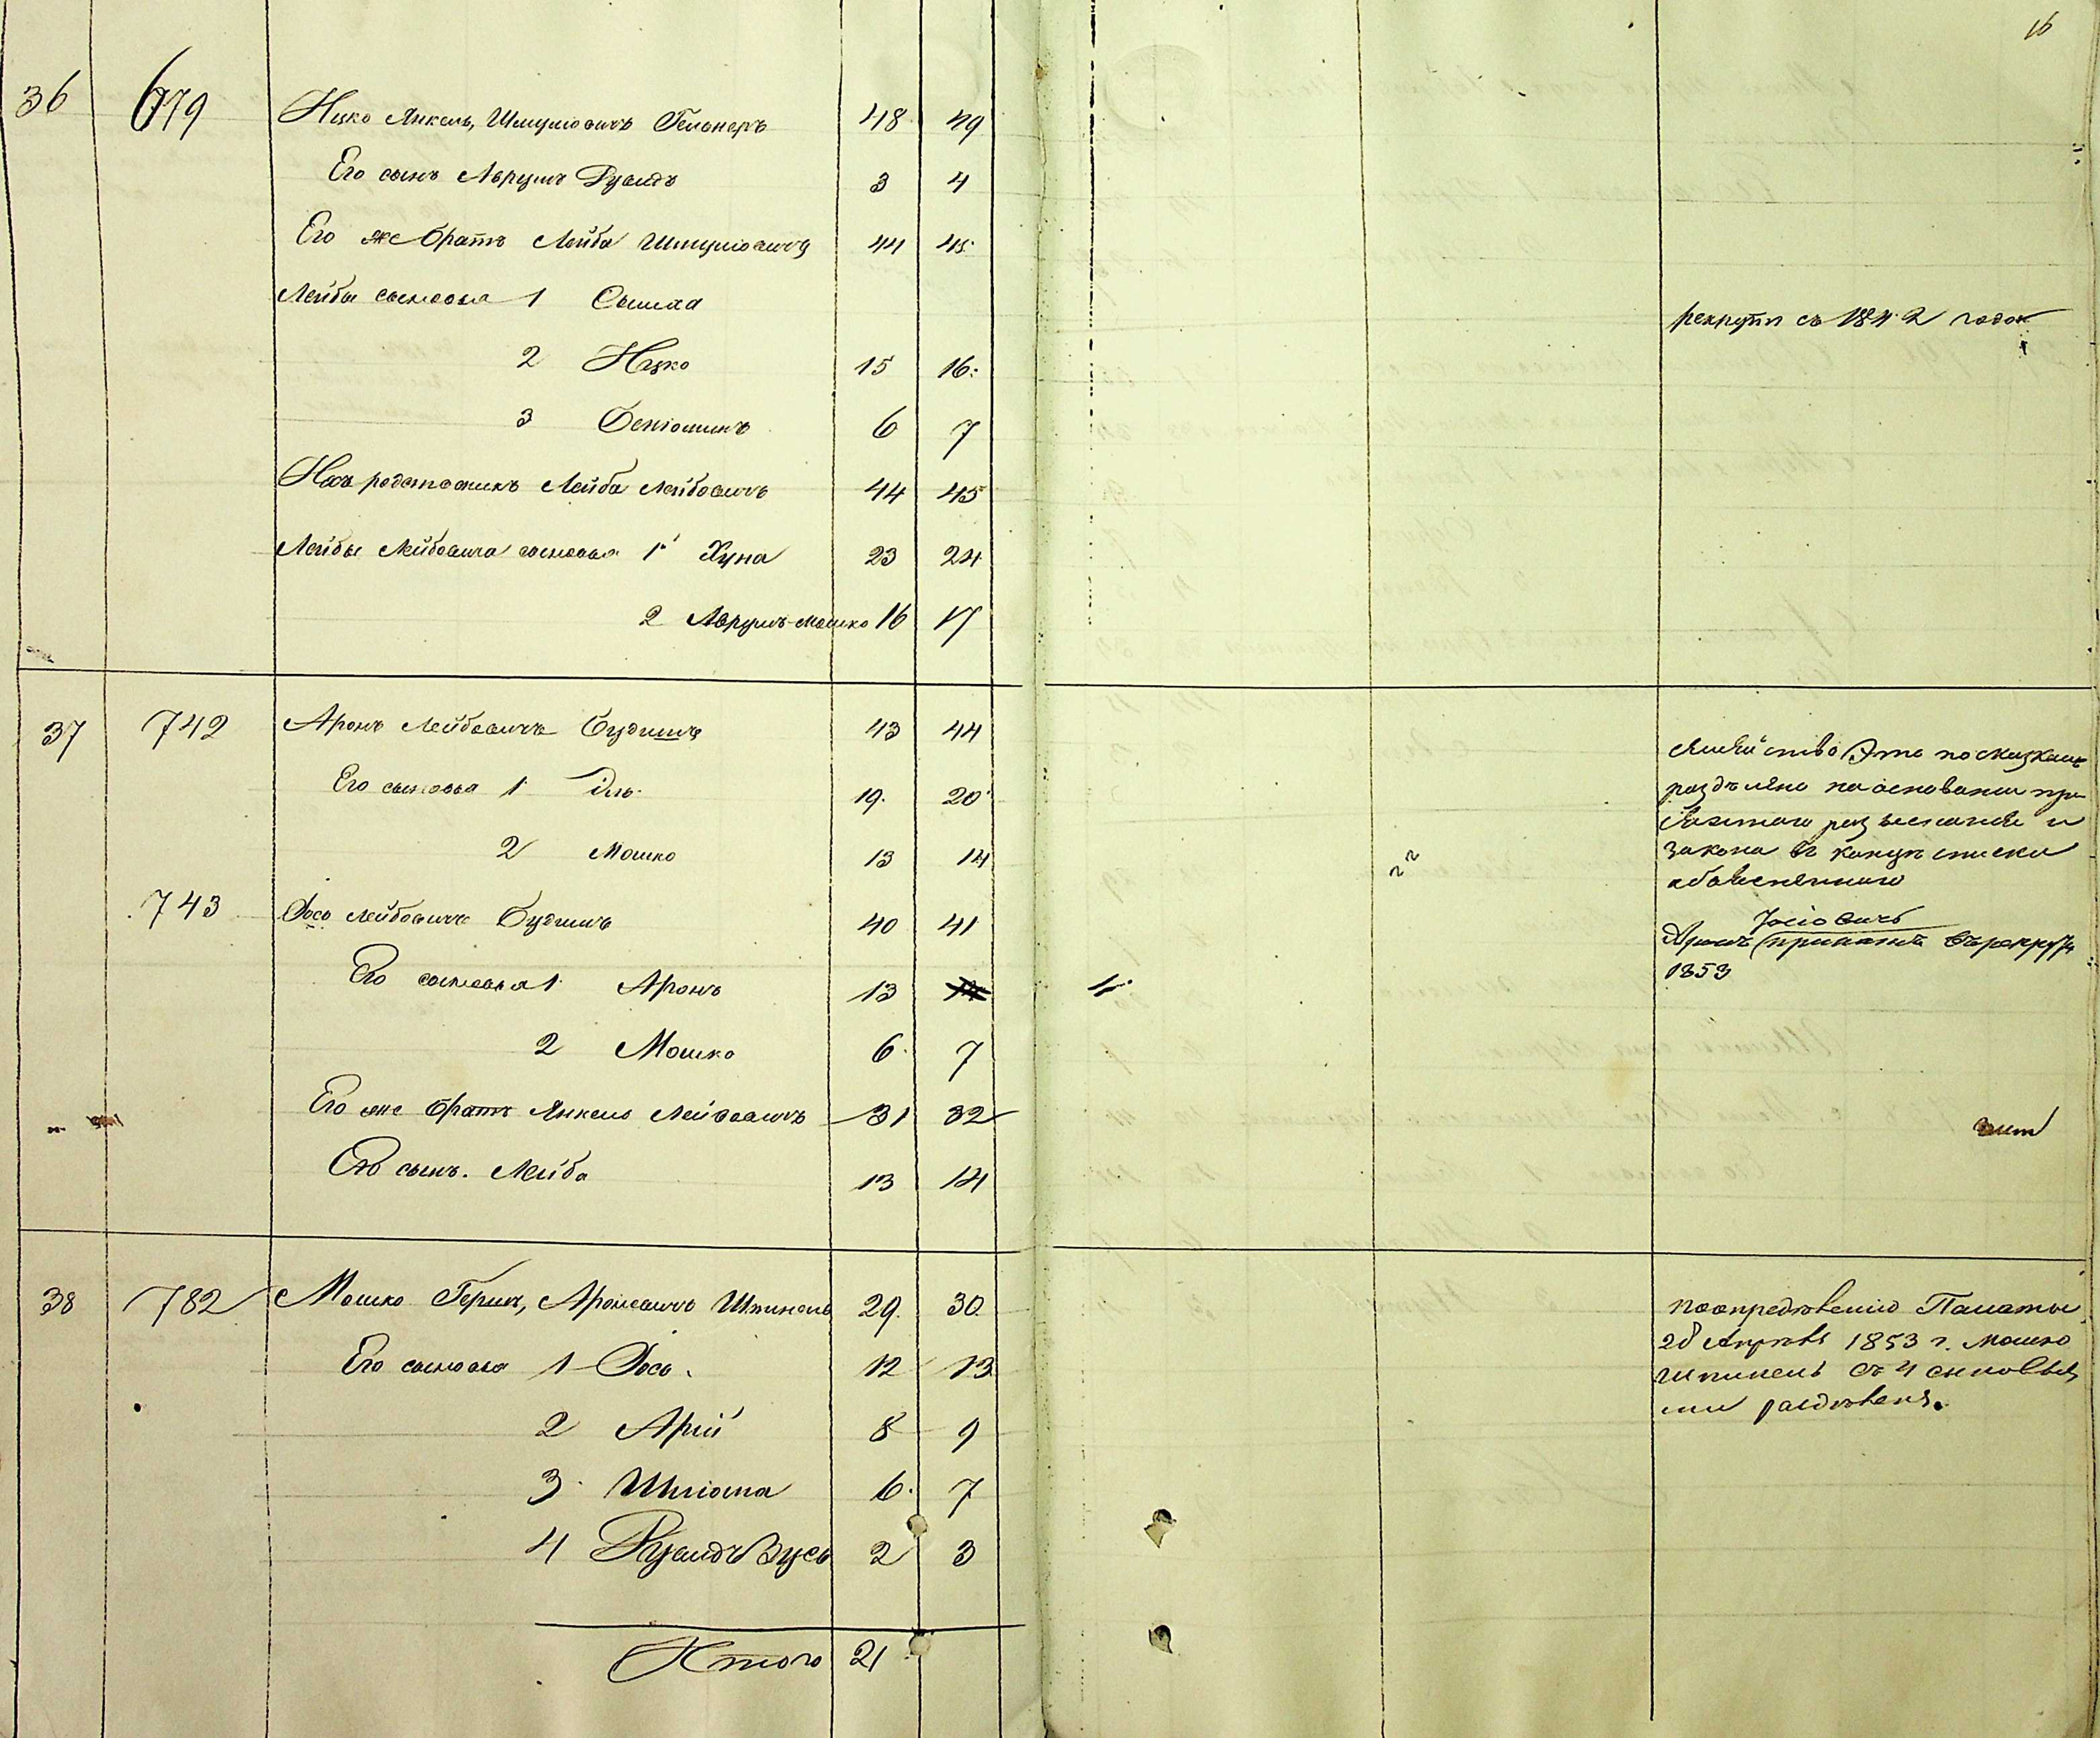 16
36 679 Ицко Янкель, Шмулiовичъ Гельнеръ 48 49
Его сынъ Аврумъ Рувинъ 3 4
Его же братъ Лейба Шмулiовичъ 44 45
Лейбы сыновья 1 Сымха рекрутъ съ 1842 года
2 Ицко 15 16
3 Бенiоминъ 6 7
Ихъ родственикъ Лейба Лейбовичъ 44 45
Лейбы Лейбовича сыновья 1 Хуна 23 24
2 Аврумъ-Мошко 16 17
37 742 Аронъ Лейбовичъ Будишъ 43 44
Его сыновья 1 Эль 19. 20
2 Мошко 13 14
743 Iось Лейбовичъ Будишъ 40 41
Его сыновья 1 Аронъ 13
2 Мошко 6 7
Его же братъ Янкель Лейбовичъ 31 32
Его сынъ. Лейба 13 14
Семейство Это по сказкамъ
раздѣлено на основании
закона въ концѣ списка
Iосiовичъ
Аронъ принятъ въ рекруты
1853
38 782 Мошко Гершъ, Ароновичъ Шпинель 29. 30
Его сыновья 1 Iось. 12 13
2 Арiй 8 9
3 Шлiома 6. 7
4 Рувинъ Зусь 2 3
По опредѣлению Палаты
28 Апрѣля 1853 г. Мошко
Шпинель съ 4 сыновья
ми раздѣленъ.
Итого 21